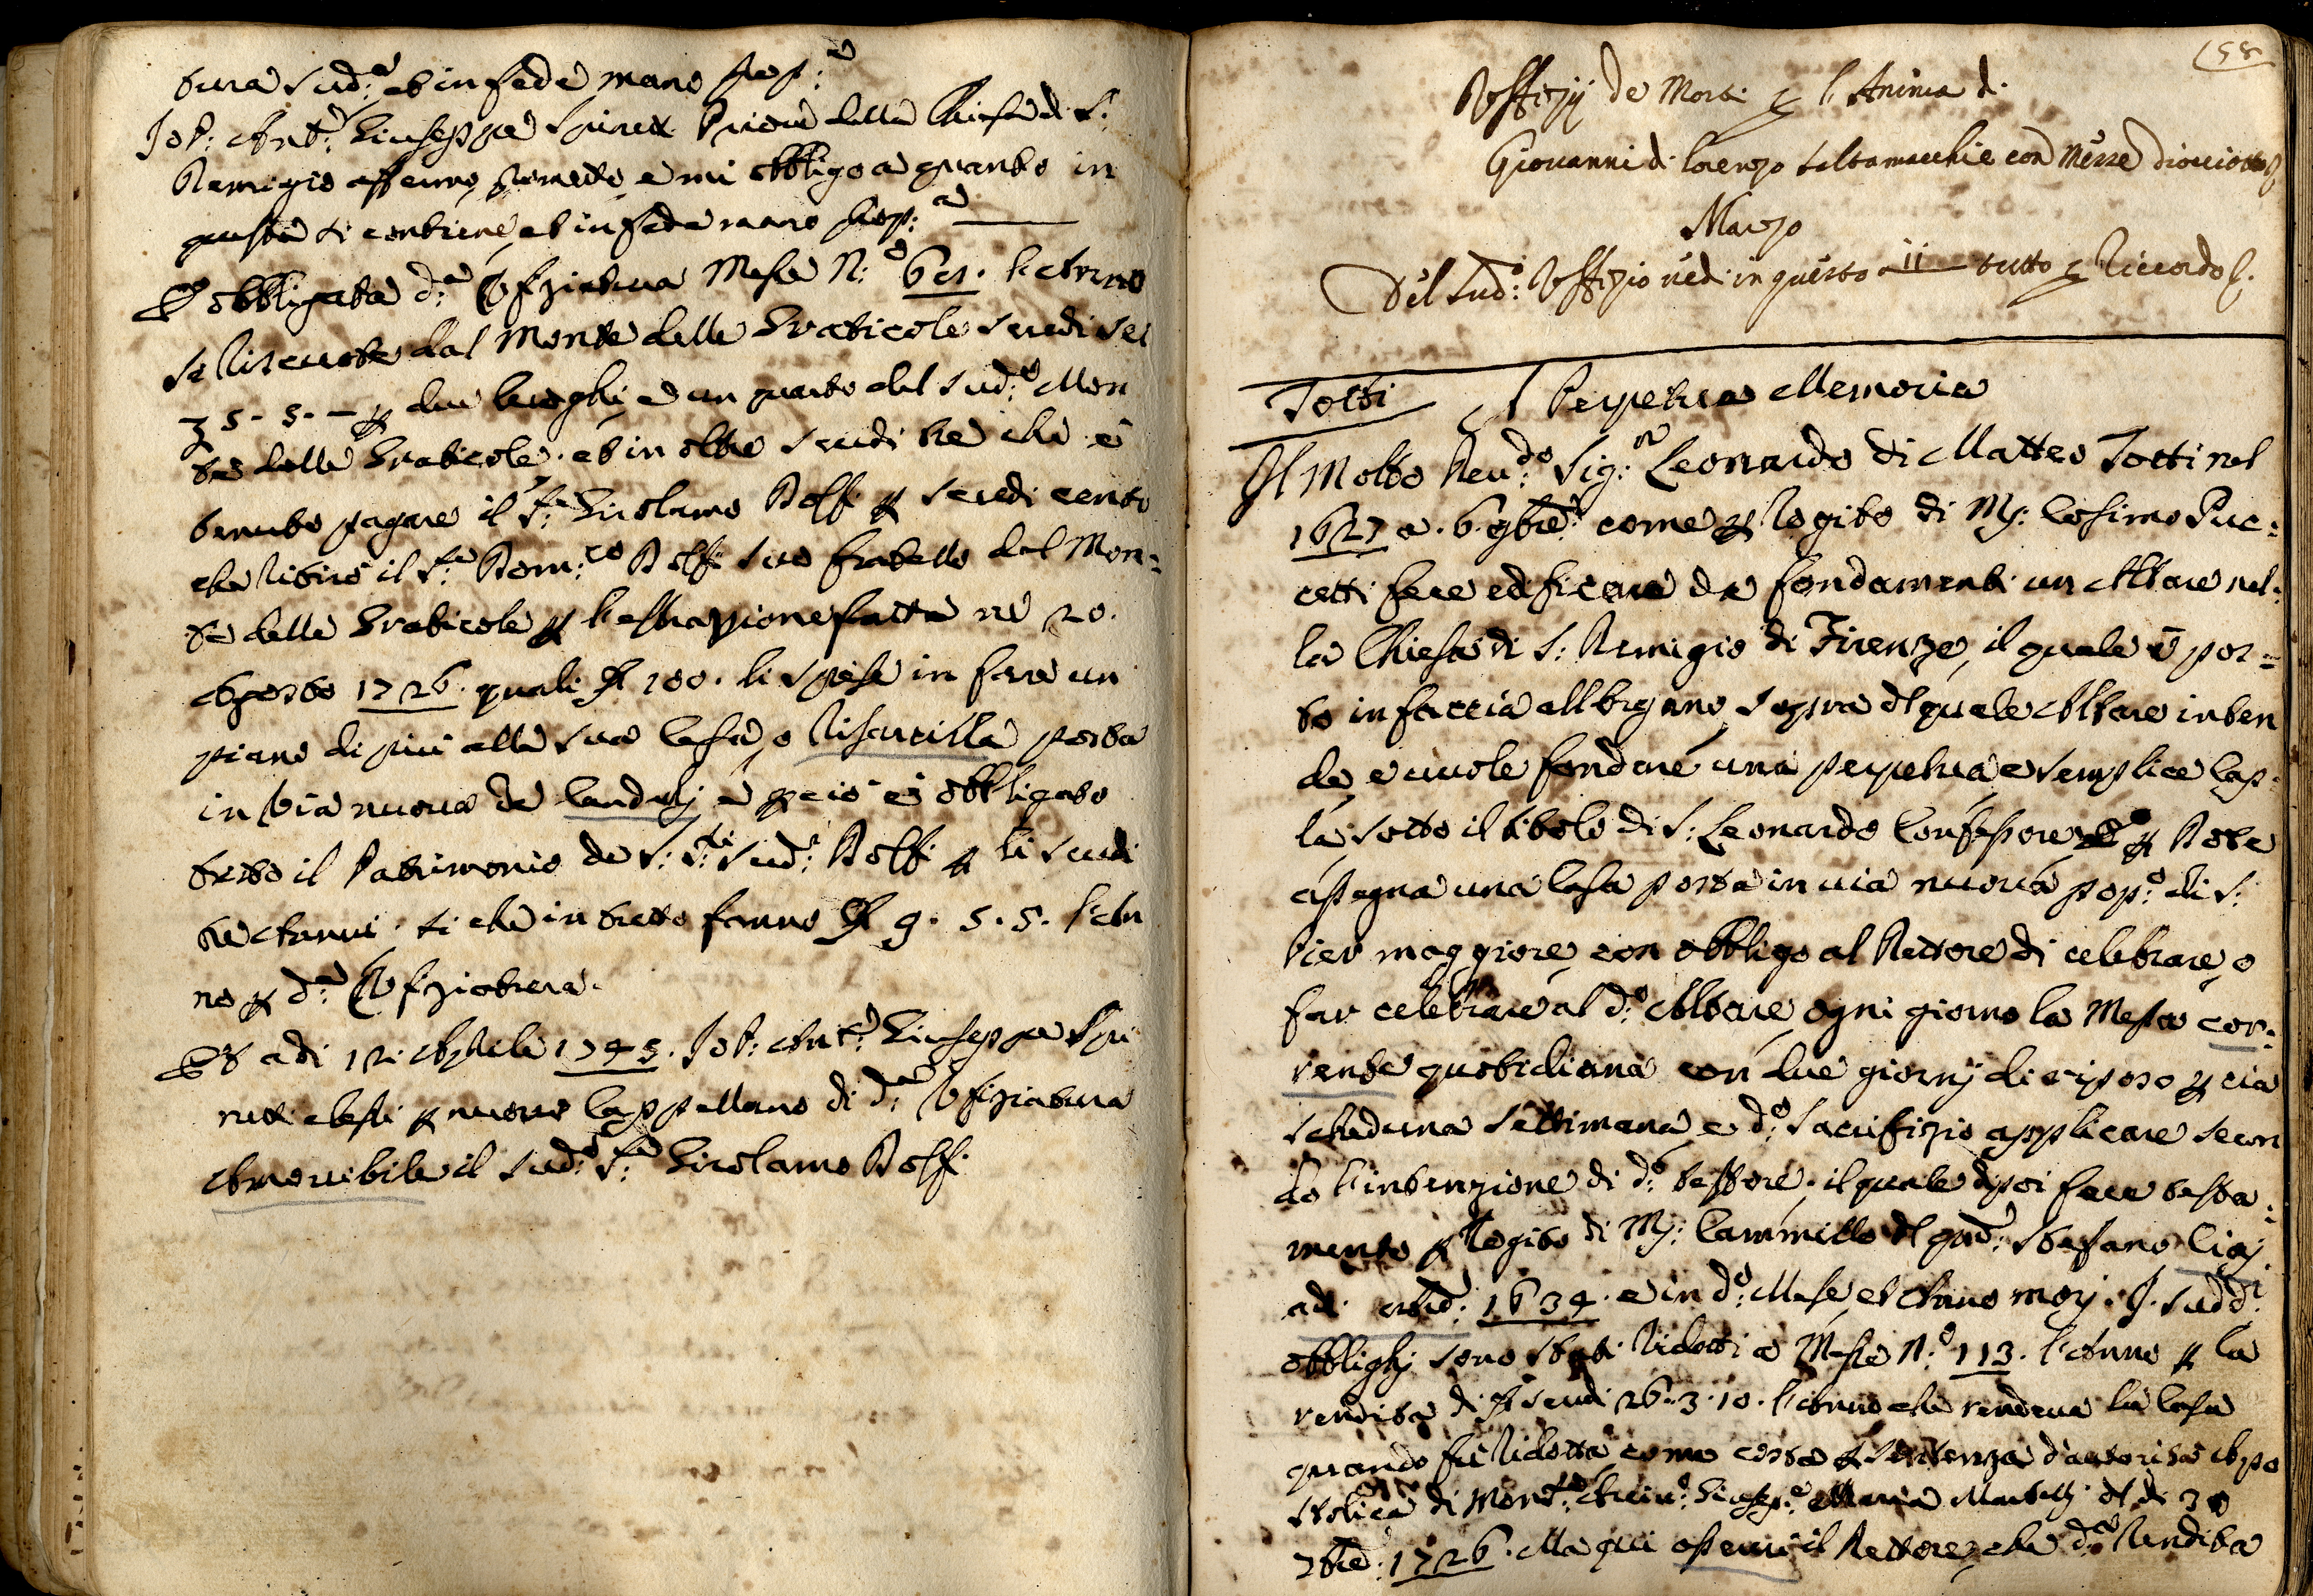 tura sud:ª et in fede mano prop:ª
Io P: Ant:º Giuseppe Spinetti Priore della Chiesa di S:
Remigio affermo, prometto, e mi obbligo a quanto in
questa si contiene, et in fede mano prop:ª
È obbligata d:ª Ufiziatura Messe N:º 61. l'Anno
si riscuote dal Monte delle Graticole scudi sei
5. 5. — p due luoghi, e un quarto del sud:º Mon
te delle Graticole. et in oltre scudi tre che è
tenuto pagare il S:ʳ Girolamo Rolfi p scudi cento
che ritirò il S:ʳ Dom:ᶜᵒ Rolfi suo fratello dal Mon=
te delle Graticole p l'estrazione fatta ne 20.
Agosto 1726. quali 100. li spese in fare un
piano di più alla sua Casa, o Casarella posta
in Via nuova da Candeli, e p ciò è obbligato
tutto il Patrimonio de S:ʳⁱ sud:ⁱ Rolfi p li scudi
tre Annui. si che in tutto fanno 9. 5. 5. l'An
no p d:ª Ufiziatura.
Et adi 12 Aprile 1745. Io P: Ant:º Giuseppe Spi
netti elessi p nuovo Cappellano di d:ª Ufiziatura
Amovibile il sud:º S:ʳ Girolamo Rolfi
158
Uffizij de Morti p l'Anima di
Giovanni di Lorenzo Saltamacchie con Messe dicciotto
Marzo
Del sud:º Uffizio vedi in questo a 11 tutto p Ricordo
Totti A Perpetua Memoria
Il Molto Reu:ᵈᵒ Sig:ʳᵉ Leonardo di Matteo Totti nel
1627 a. 6. 9bre. come p rogito di Mʳ: Cosimo Puc=
cetti fece edificare da fondamenti un Altare nel=
la Chiesa di S: Remigio di Firenze, il quale è pos=
to in faccia all'organo, sopra del quale Altare inten
de, e vuole fondare una perpetua, e semplice Cap=
la sotto il titolo di S: Leonardo Confessore p Dote
assegna una Casa posta in via nuova pop:º di S:
Pier maggiore, con obbligo al Rettore di celebrare, o
far celebrare al d:º Altare ogni giorno la Messa cor=
rente quotidiana con due giorni di riposo p cia
scheduna settimana, e d:º Sacrifizio applicare secon
do l'intenzione di d:º testore. il quale dipoi fece testa=
mento p Rogito di Mʳ: Cammillo del qnd: Stefano Ciaj
adi 1634. e in d:º Mese, et Anno morì. I sudd:ⁱ
obblighi sono stati ridotti a Messe N:º 113. l'Anno p la
rendita di scudi 26. 3. 10. l'Anno che rendeva la Casa
quando fu ridotta come costa p sentenza d'autorità Apo
stolica di Mons:ʳᵉ Arciv:º Giusep:º Maria Martelli del dì 30
7bre: 1726. Ma qui osservi il Rettore, che d:ª Rendita